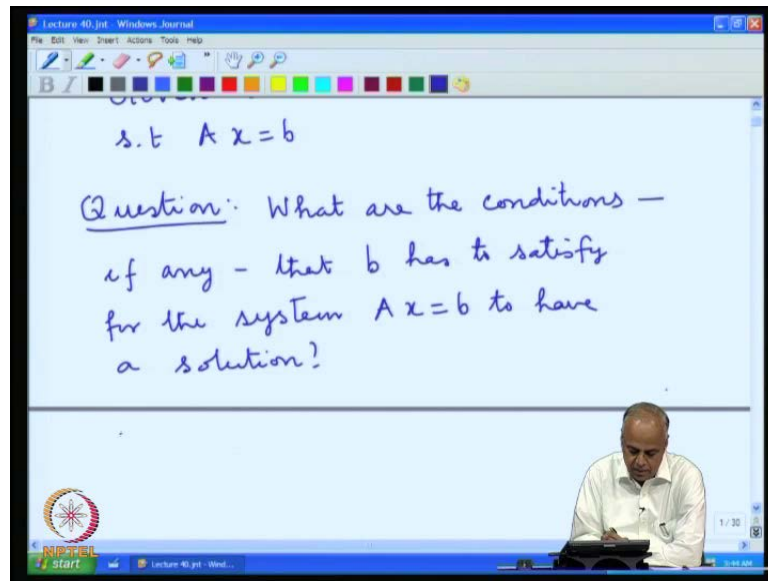 Lecture 40.jnt - Windows Journal
File Edit View Insert Actions Tools Help
B I
s.t A x = b
Question: What are the conditions —
if any - that b has to satisfy
for the system A x = b to have
a solution?
1 / 30
NPTEL
start Lecture 40.jnt - Wind... 5:44 AM